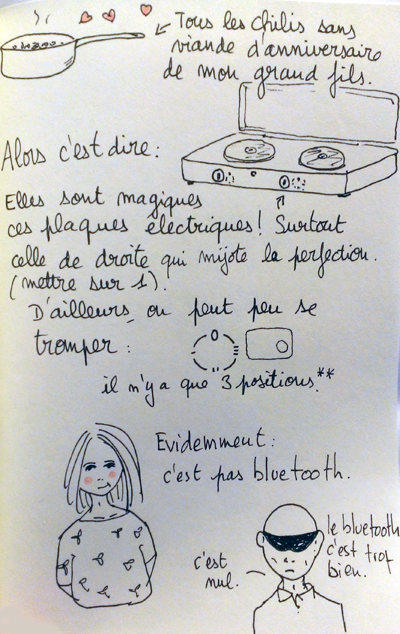 Tous les chilis sans
viande d'anniversaire
de mon grand fils.
Alors c'est dire :
Elles sont magiques
ces plaques électriques ! Surtout
celle de droite qui mijote la perfection.
(mettre sur 1).
D'ailleurs, on peut peu se
tromper :
0
il n'y a que 3 positions.**
Evidemment :
c'est pas bluetooth.
c'est
nul.
le bluetooth
c'est trop
bien.